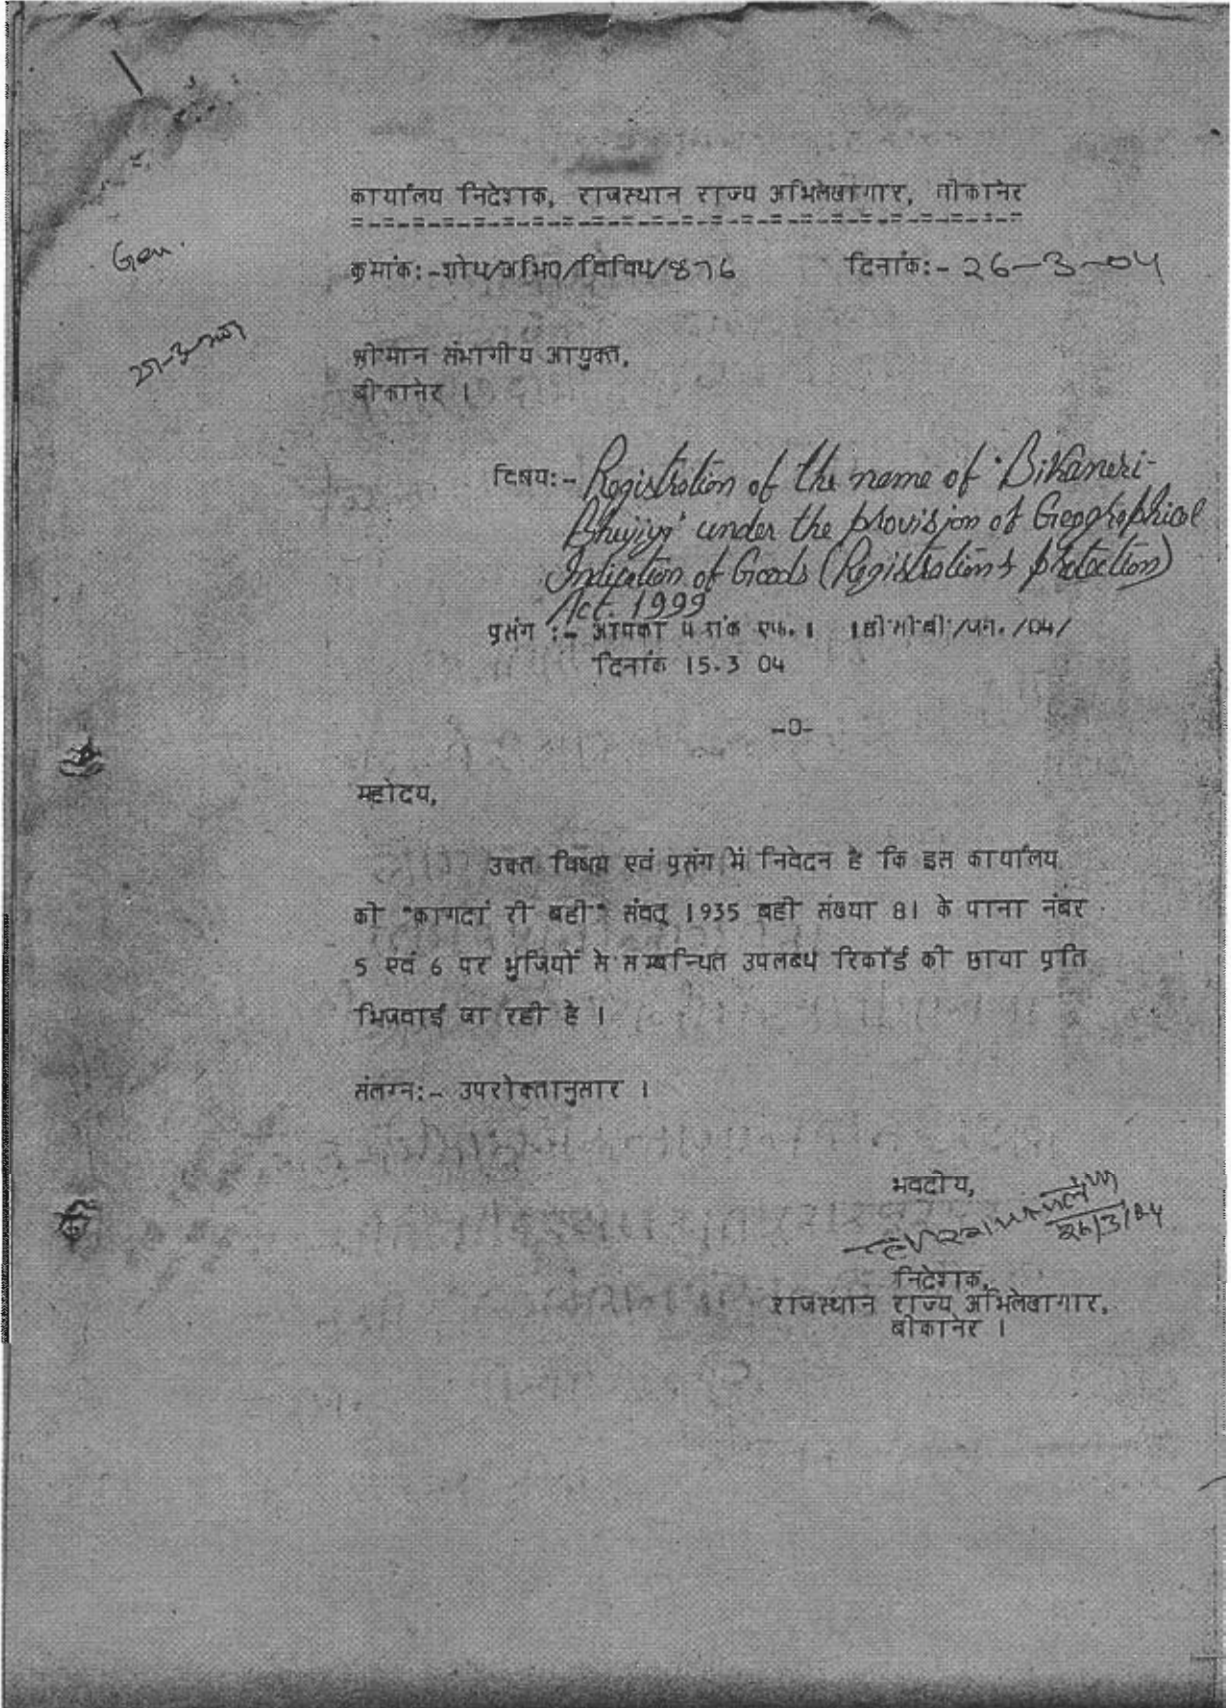 कार्यालय निदेशक, राजस्थान राज्य अभिलेखागार, बीकानेर
=-=-=-=-=-=-=-=-=-=-=-=-=-=-=-=-=-=-=-=-=-=
Gen.
क्रमांक:-शोध/अभि0/विविध/876 दिनांक:- 26-3-04
श्रीमान संभागीय आयुक्त,
बीकानेर ।
विषय:- Registration of the name of 'Bikaneri-
Bhujiya' under the provision of Geographical
Indication of Goods (Registration & protection)
Act. 1999
प्रसंग :- आपका पत्रांक एफ. ।
दिनांक 15.3 04
-0-
महोदय,
उक्त विषय एवं प्रसंग में निवेदन है कि इस कार्यालय
की "कागदां री बही" संवत् 1935 बही संख्या 81 के पाना नंबर
5 एवं 6 पर भुजियों से सम्बन्धित उपलब्ध रिकॉर्ड की छाया प्रति
भिजवाई जा रही है ।
संलग्न:- उपरोक्तानुसार ।
भवदीय,
26/3/04
निदेशक,
राजस्थान राज्य अभिलेखागार,
बीकानेर ।